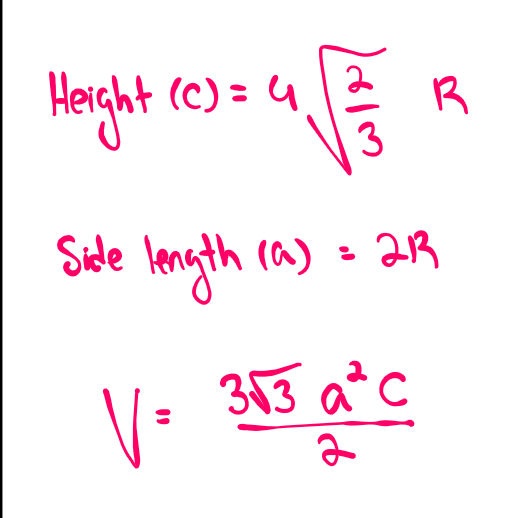 Height (c) = 4 √(2/3) R
Side length (a) = 2R
V = 3√3 a² c / 2